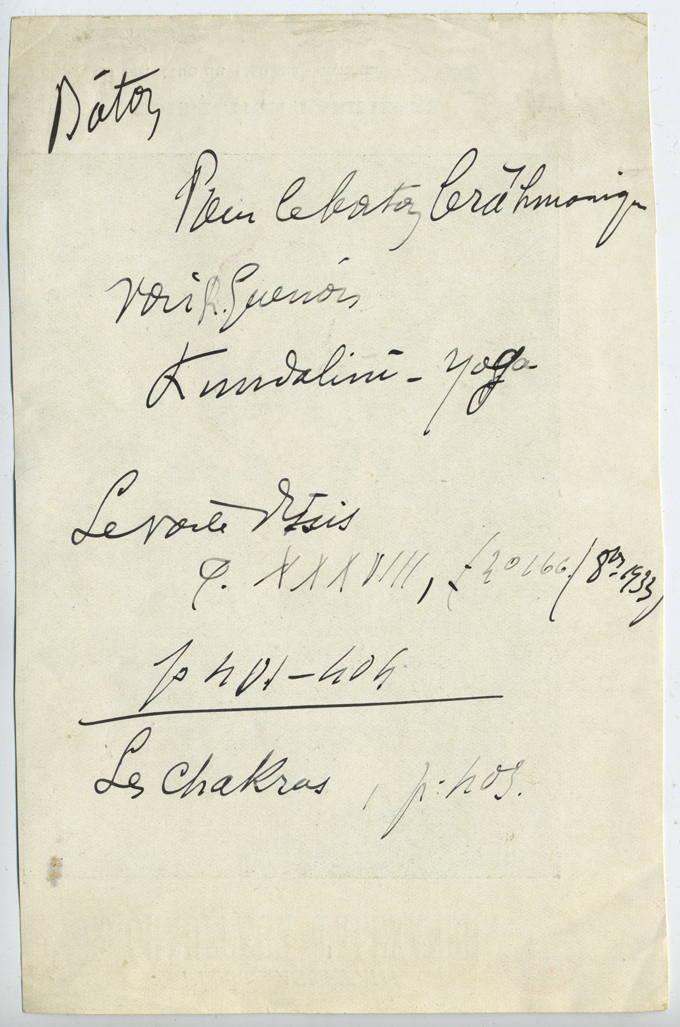 Bâton
Pour le baton brâhmaniqu
voir R. Guenón
Kundalinî - yoga
Le voile d'Isis
T. XXXVIII, (no 166) 8bre 1933
p 401-404
Les chakras, p. 403.